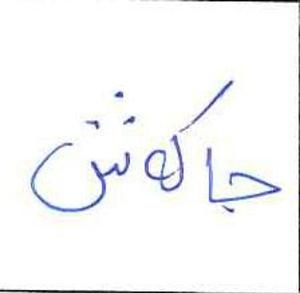 جاكوش